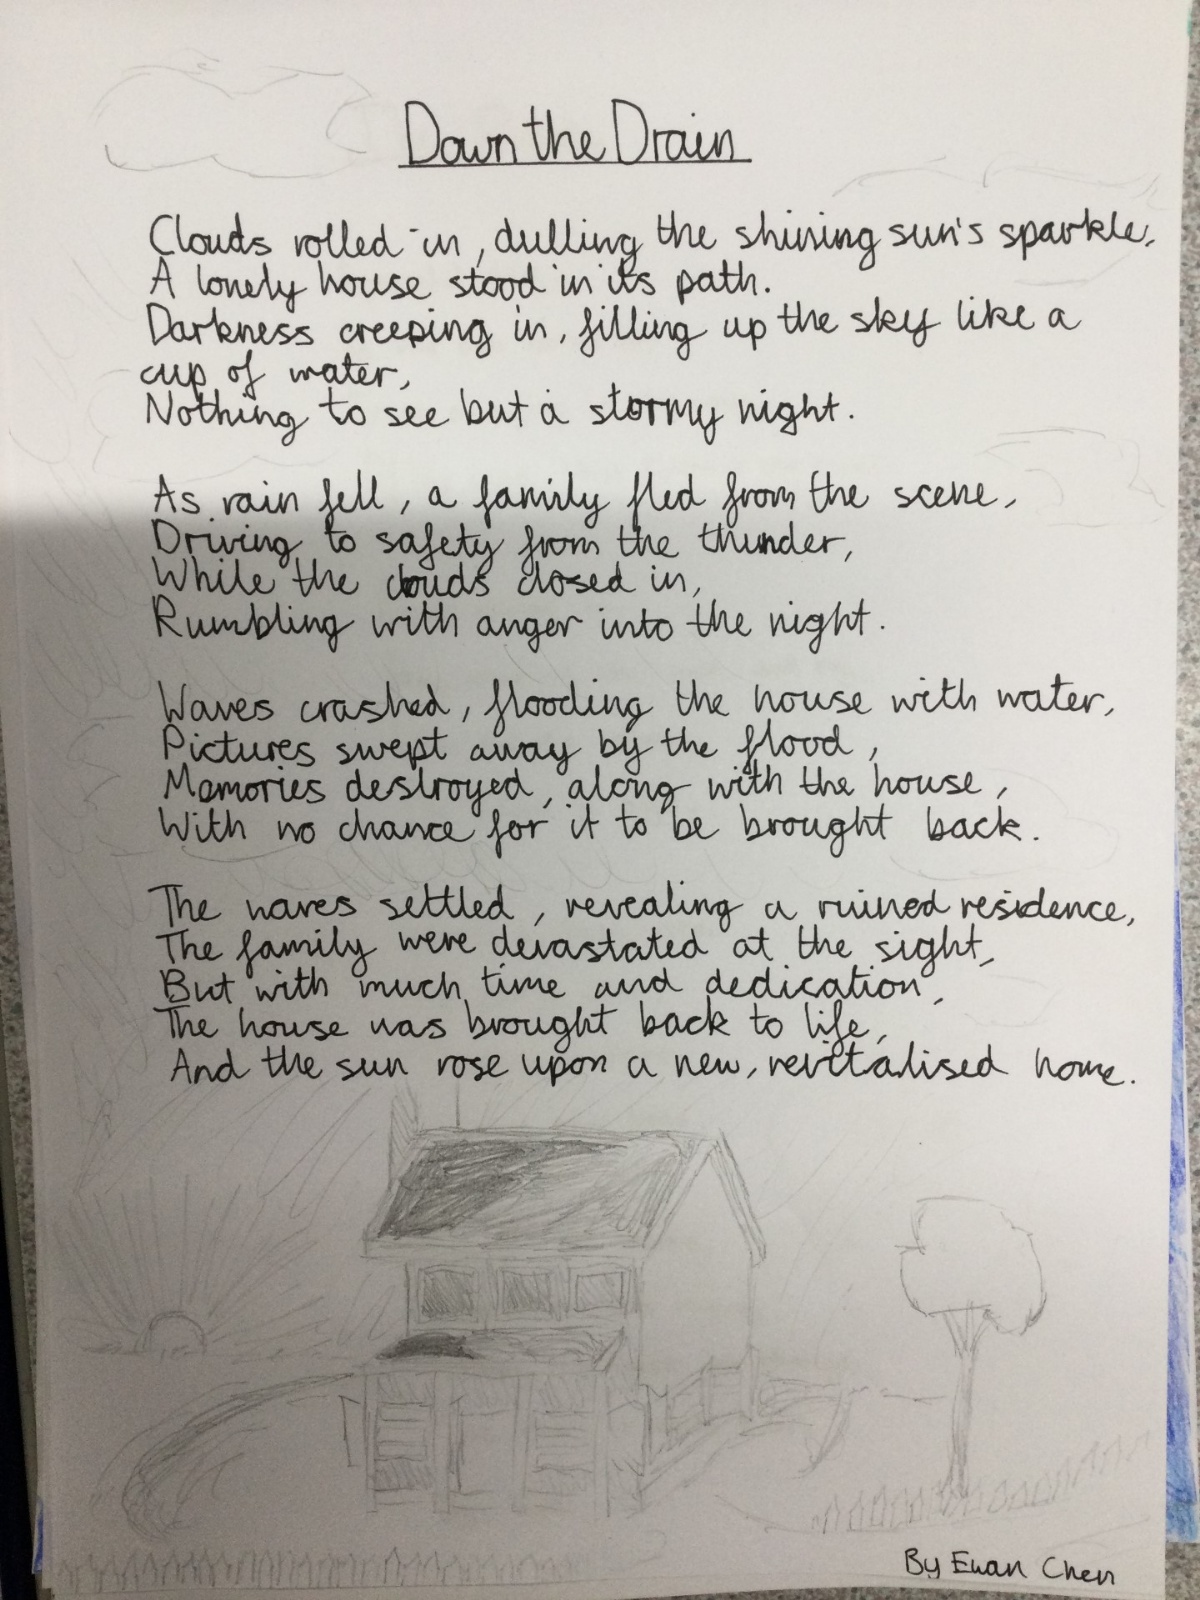 Down the Drain
Clouds rolled in, dulling the shining sun's sparkle,
A lonely house stood in its path.
Darkness creeping in, filling up the sky like a
cup of water,
Nothing to see but a stormy night.
As rain fell, a family fled from the scene,
Driving to safety from the thunder,
While the clouds closed in,
Rumbling with anger into the night.
Waves crashed, flooding the house with water,
Pictures swept away by the flood,
Memories destroyed, along with the house,
With no chance for it to be brought back.
The waves settled, revealing a ruined residence,
The family were devastated at the sight,
But with much time and dedication,
The house was brought back to life,
And the sun rose upon a new, revitalised home.
By Euan Chen